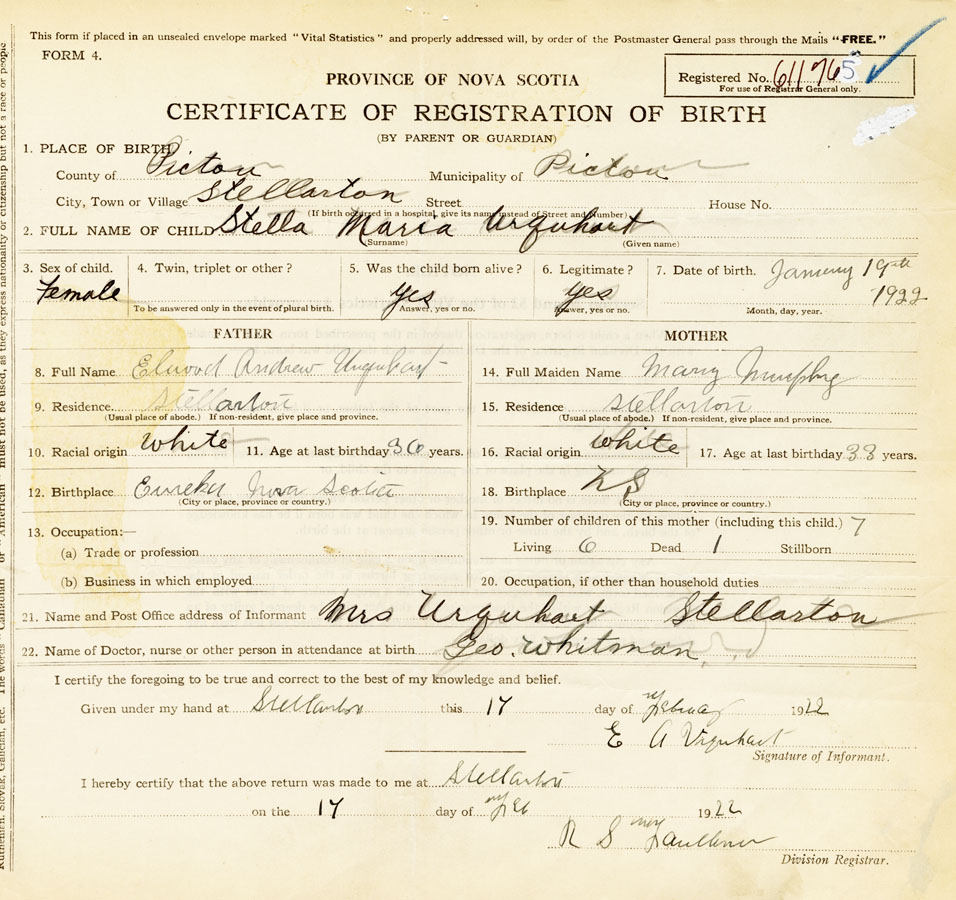 This form if placed in an unsealed envelope marked "Vital Statistics" and properly addressed will, by order of the Postmaster General pass through the Mails "FREE."
FORM 4.
Registered No. 611765
For use of Registrar General only.
PROVINCE OF NOVA SCOTIA
CERTIFICATE OF REGISTRATION OF BIRTH
(BY PARENT OR GUARDIAN)
1. PLACE OF BIRTH
County of Pictou Municipality of Pictou
City, Town or Village Stellarton Street House No.
(If birth occurred in a hospital, give its name instead of Street and Number)
2. FULL NAME OF CHILD Stella Maria Urquhart
(Surname) (Given name)
3. Sex of child. 4. Twin, triplet or other? 5. Was the child born alive? 6. Legitimate? 7. Date of birth. January 19th
Female yes yes 1922
To be answered only in the event of plural birth. Answer, yes or no. Answer, yes or no. Month, day, year.
FATHER MOTHER
8. Full Name Elwood Andrew Urquhart 14. Full Maiden Name Mary Murphy
9. Residence Stellarton 15. Residence Stellarton
(Usual place of abode.) If non-resident, give place and province. (Usual place of abode.) If non-resident, give place and province.
10. Racial origin White 11. Age at last birthday 36 years. 16. Racial origin White 17. Age at last birthday 38 years.
12. Birthplace Eureka Nova Scotia 18. Birthplace NS
(City or place, province or country.) (City or place, province or country.)
13. Occupation:— 19. Number of children of this mother (including this child.) 7
(a) Trade or profession Living 6 Dead 1 Stillborn
(b) Business in which employed 20. Occupation, if other than household duties
21. Name and Post Office address of Informant Mrs Urquhart Stellarton
22. Name of Doctor, nurse or other person in attendance at birth Geo. Whitman
I certify the foregoing to be true and correct to the best of my knowledge and belief.
Given under my hand at Stellarton this 17 day of February 1922
E A Urquhart
Signature of Informant.
I hereby certify that the above return was made to me at Stellarton
on the 17 day of Feb 1922
R S Faulkner
Division Registrar.
must not be used, as they express nationality or citizenship but not a race or people
Ruthenian, Slovak, Galician, etc. The words "Canadian" or "American"